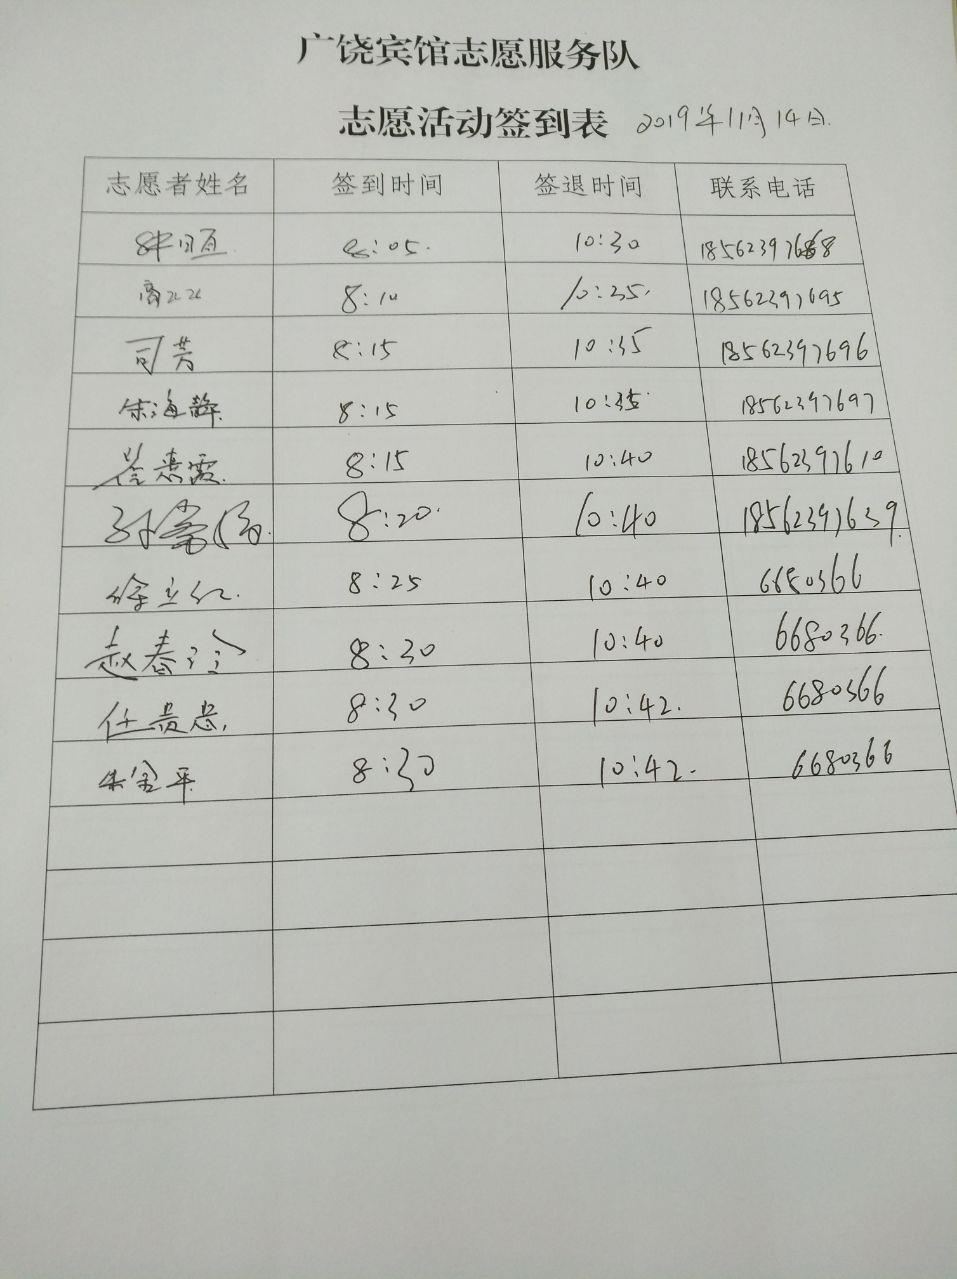 广饶宾馆志愿服务队
志愿活动签到表 2019年11月14日.
志愿者姓名 签到时间 签退时间 联系电话
8:05. 10:30 18562397668
8:10 10:35. 18562397695
司芳 8:15 10:35 18562397696
朱海静. 8:15 10:35. 18562397697
崔惠霞. 8:15 10:40 18562397610
8:20. 10:40 18562397639.
徐立红. 8:25 10:40 6680366
赵春玲 8:30 10:40 6680366.
任贵忠. 8:30 10:42. 6680366
朱金平 8:30 10:42. 6680366